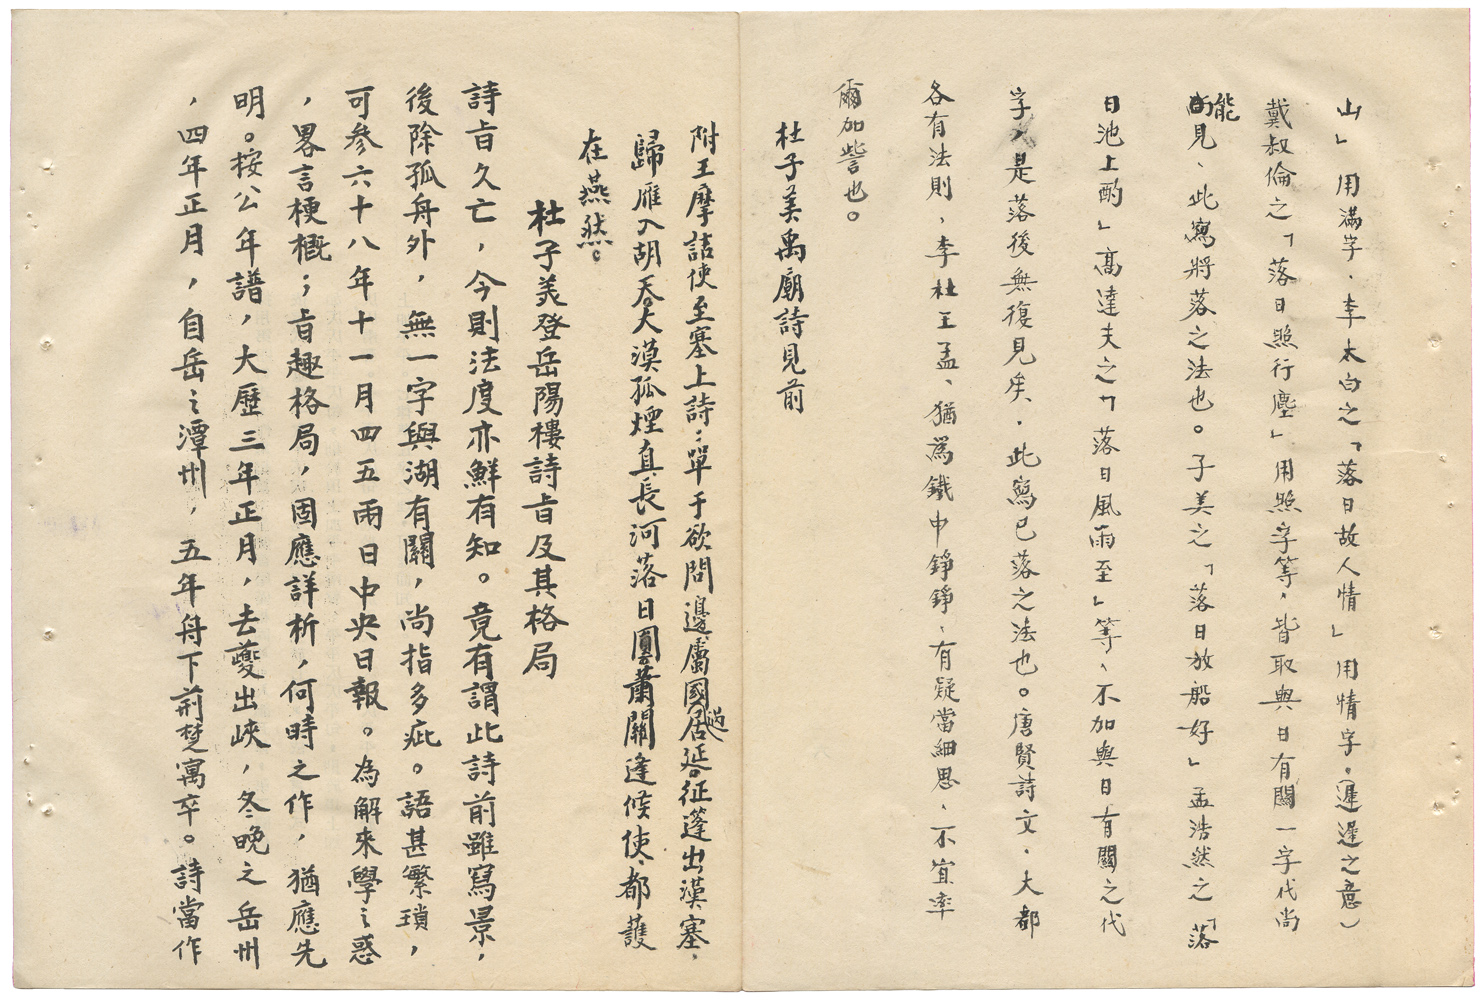 山」用滿字．李太白之「落日故人情」用情字．（遲遲之意）
戴叔倫之「落日照行塵」用照字等，皆取與日有關一字代尚
能見、此寫將落之法也。子美之「落日放船好」孟浩然之「落
日池上酌」高達夫之「落日風雨至」等、不加與日有關之代
字，是落後無復見矣．此寫已落之法也。唐賢詩文．大都
各有法則、李杜王孟、猶為鐵中錚錚、有疑當細思、不宜率
爾加訾也。
杜子美禹廟詩見前
附王摩詰使至塞上詩：單于欲問邊，屬國過居延。征蓬出漢塞，
歸雁入胡天。大漠孤煙直，長河落日圓。蕭關逢候使，都護
在燕然。
杜子美登岳陽樓詩旨及其格局
詩旨久亡，今則法度亦鮮有知。竟有謂此詩前雖寫景，
後除孤舟外，無一字與湖有關，尚指多疵。語甚繁瑣，
可参六十八年十一月四五兩日中央日報。為解來學之惑
，畧言梗概；旨趣格局，固應詳析，何時之作，猶應先
明。按公年譜，大歷三年正月，去夔出峽，冬晚之岳州
，四年正月，自岳之潭州，五年舟下荊楚寓卒。詩當作